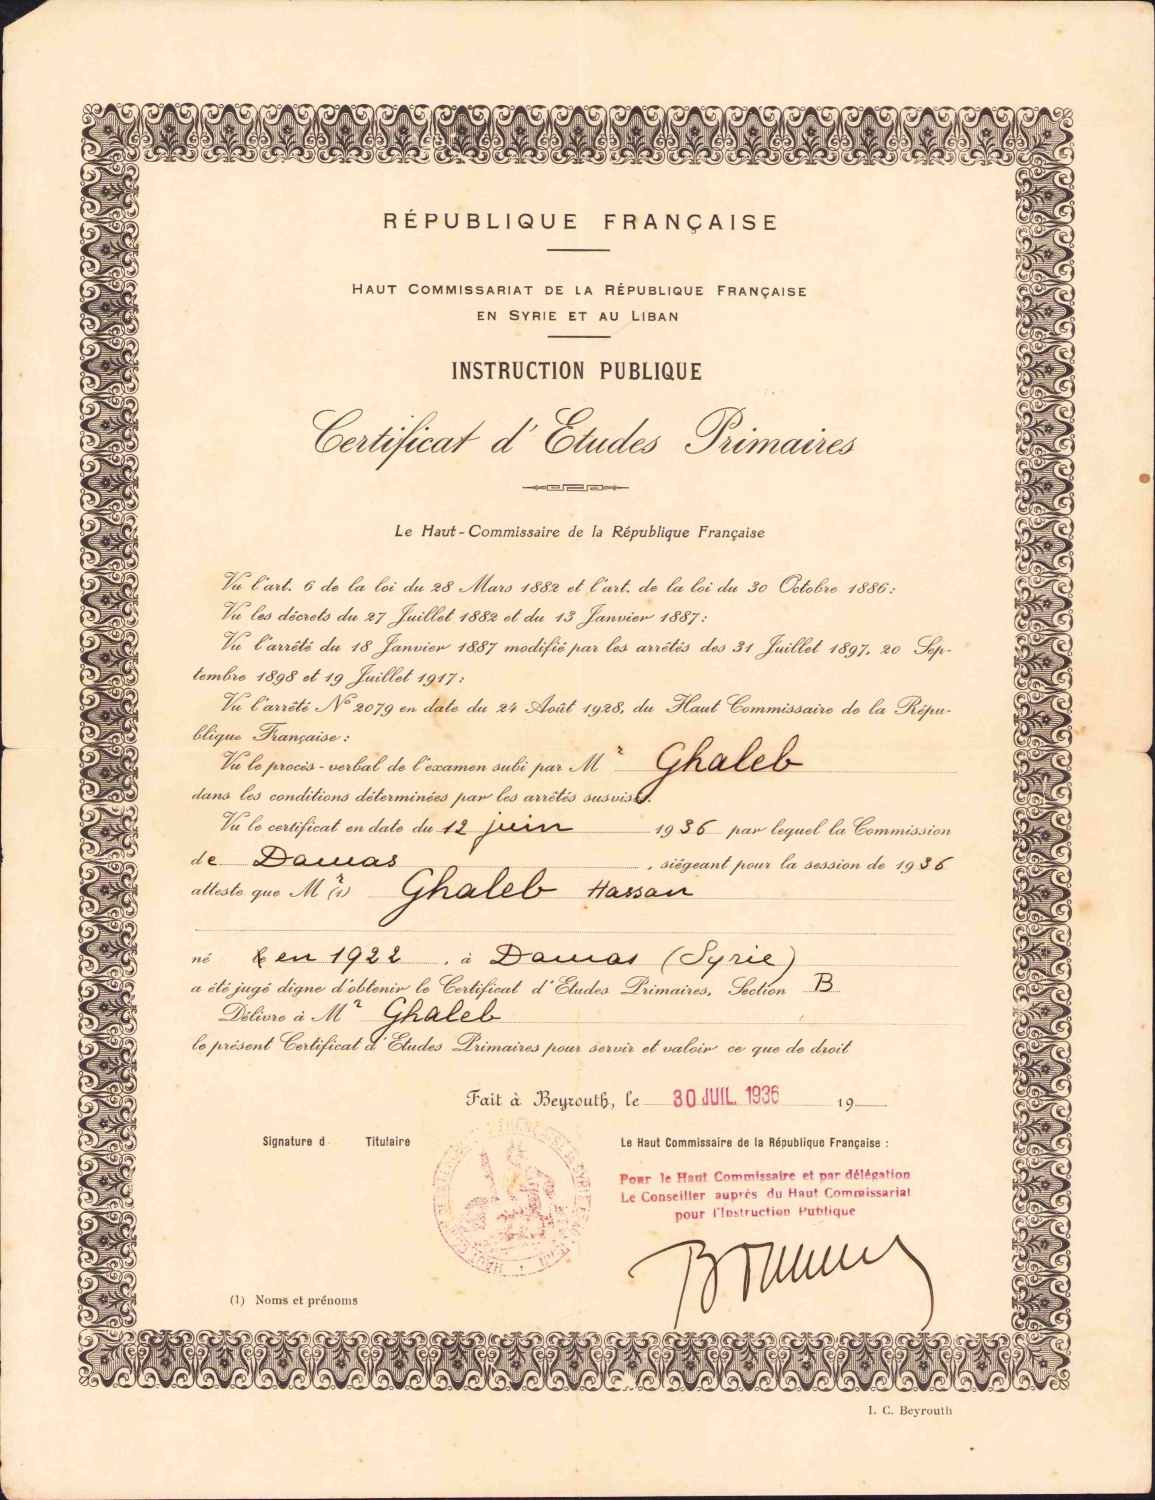 RÉPUBLIQUE FRANÇAISE
HAUT COMMISSARIAT DE LA RÉPUBLIQUE FRANÇAISE
EN SYRIE ET AU LIBAN
INSTRUCTION PUBLIQUE
Certificat d'Etudes Primaires
Le Haut-Commissaire de la République Française
Vu l'art. 6 de la loi du 28 Mars 1882 et l'art. de la loi du 30 Octobre 1886:
Vu les décrets du 27 Juillet 1882 et du 13 Janvier 1887:
Vu l'arrêté du 18 Janvier 1887 modifié par les arrêtés des 31 Juillet 1897, 20 Sep-
tembre 1898 et 19 Juillet 1917:
Vu l'arrêté No 2079 en date du 24 Août 1928, du Haut Commissaire de la Répu-
blique Française:
Vu le procès-verbal de l'examen subi par Mr Ghaleb
dans les conditions déterminées par les arrêtés susvisés.
Vu le certificat en date du 12 juin 1936 par lequel la Commission
de Damas, siégeant pour la session de 1936
atteste que Mr (1) Ghaleb Hassan
né en 1922, à Damas (Syrie)
a été jugé digne d'obtenir le Certificat d'Etudes Primaires, Section B
Délivre à Mr Ghaleb
le présent Certificat d'Etudes Primaires pour servir et valoir ce que de droit
Fait à Beyrouth, le 30 JUIL. 1936 19
Signature d Titulaire
Le Haut Commissaire de la République Française :
Pour le Haut Commissaire et par délégation
Le Conseiller auprès du Haut Commissariat
pour l'Instruction Publique
(1) Noms et prénoms
I. C. Beyrouth